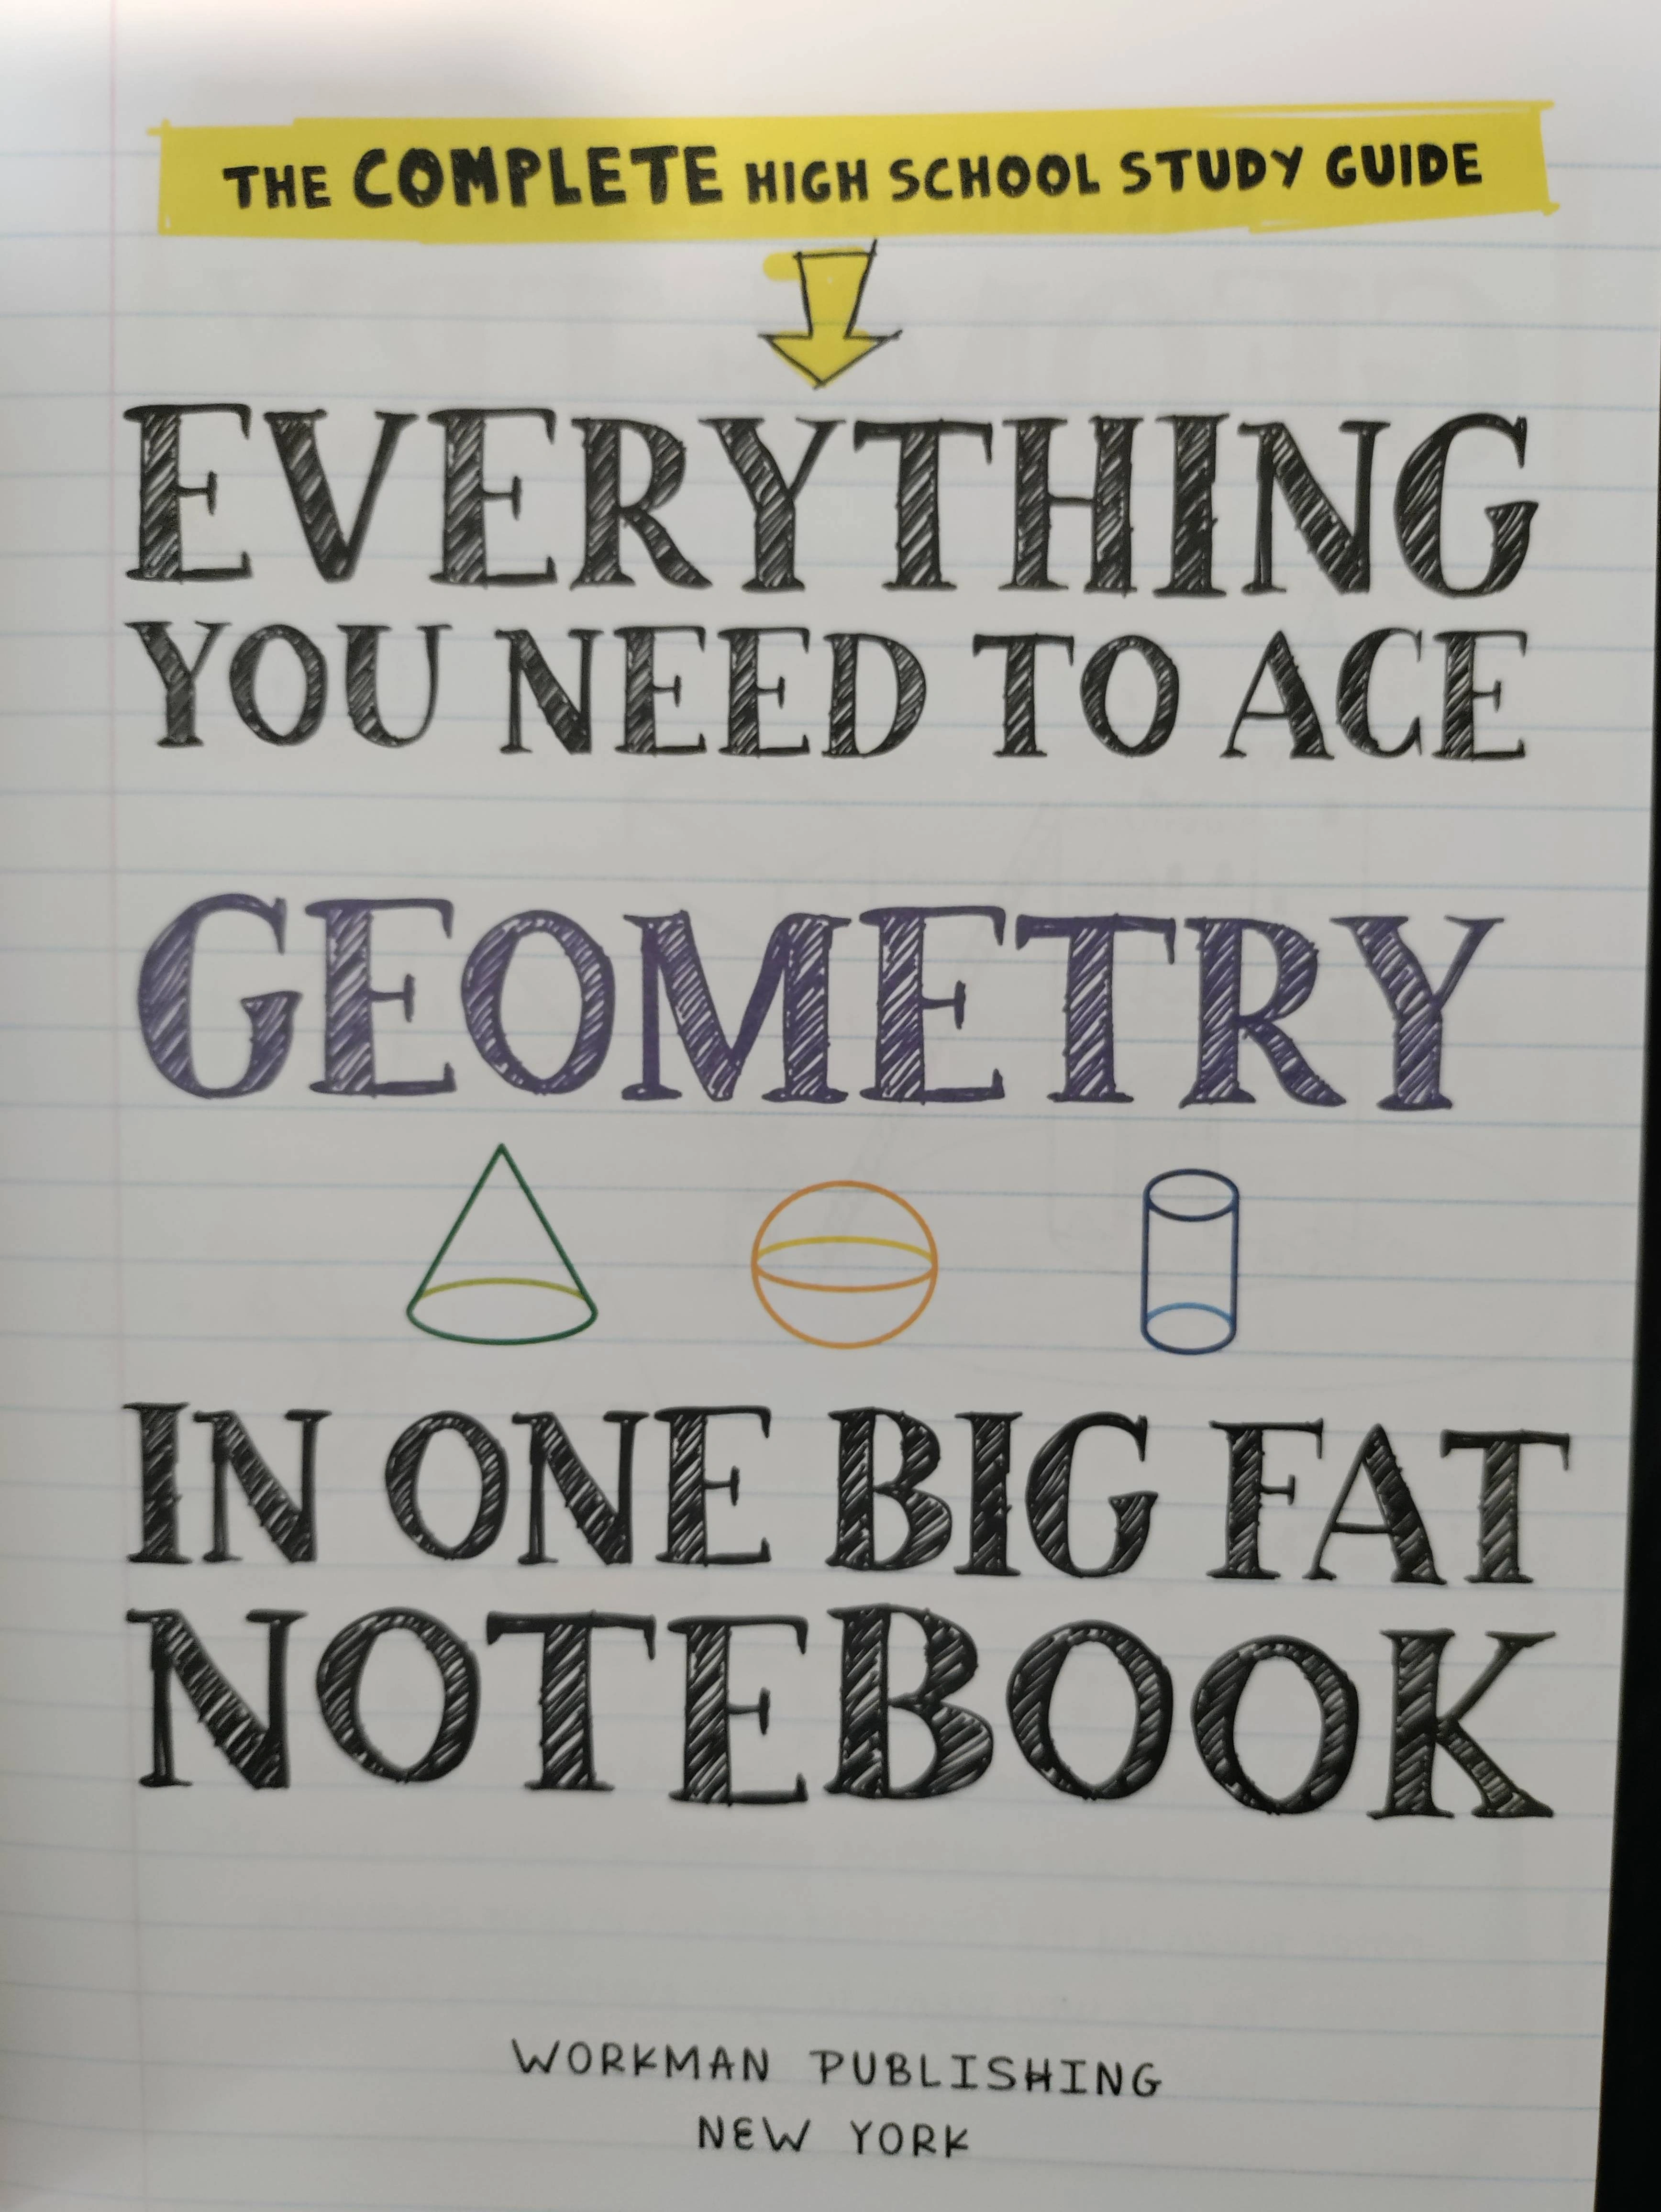 THE COMPLETE HIGH SCHOOL STUDY GUIDE
EVERYTHING
YOU NEED TO ACE
GEOMETRY
IN ONE BIG FAT
NOTEBOOK
WORKMAN PUBLISHING
NEW YORK